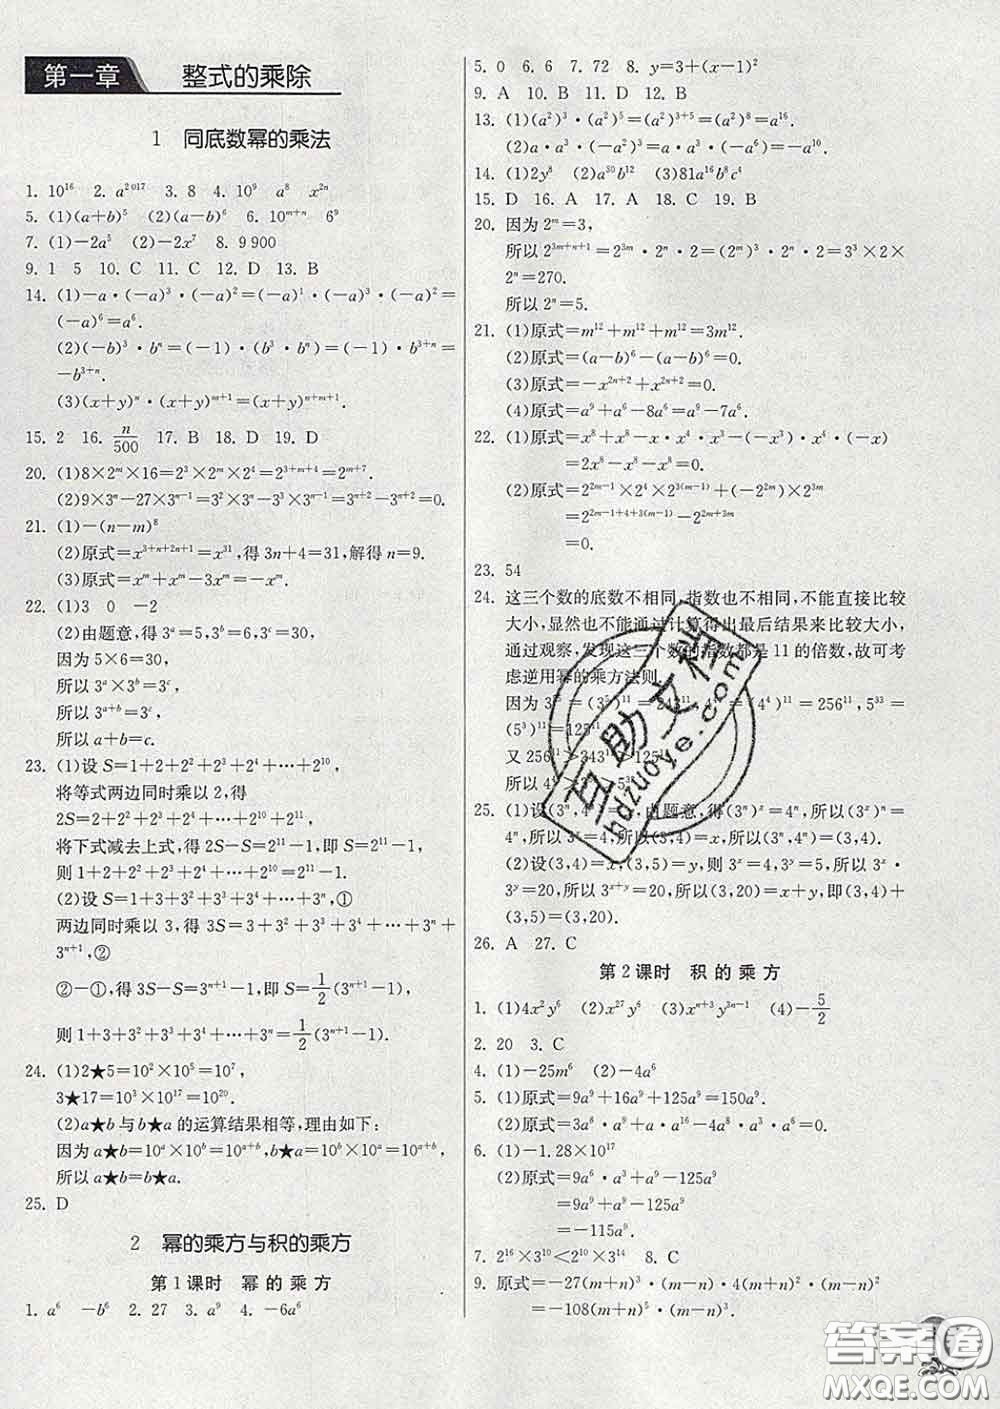 第一章 整式的乘除
1 同底数幂的乘法
1. 10^16 2. a^2017 3. 8 4. 10^9 a^8 x^2n
5. (1)(a+b)^5 (2)(a-b)^6 6. 10^{m+n} 6^9
7. (1)-2a^5 (2)-2x^7 8. 9 900
9. 1 5 10. C 11. C 12. D 13. B
14. (1)-a·(-a)^3·(-a)^2=(-a)^1·(-a)^3·(-a)^2=
(-a)^6=a^6.
(2)(-b)^3·b^n=(-1)·(b^3·b^n)=(-1)·b^{3+n}=
-b^{3+n}.
(3)(x+y)^n·(x+y)^{m+1}=(x+y)^{n+m+1}.
15. 2 16. n/500 17. B 18. D 19. D
20. (1)8×2^m×16=2^3×2^m×2^4=2^{3+m+4}=2^{m+7}.
(2)9×3^n-27×3^{n-1}=3^2×3^n-3×3^{n-1}=3^{n+2}-3^{n+2}=0.
21. (1)-(n-m)^8
(2)原式=x^{3+n+2n+1}=x^31,得 3n+4=31,解得 n=9.
(3)原式=x^m+x^m-3x^m=-x^m.
22. (1)3 0 -2
(2)由题意,得 3^a=5,3^b=6,3^c=30,
因为 5×6=30,
所以 3^a×3^b=3^c,
所以 3^{a+b}=3^c,
所以 a+b=c.
23. (1)设 S=1+2+2^2+2^3+2^4+…+2^10,
将等式两边同时乘以 2,得
2S=2+2^2+2^3+2^4+…+2^10+2^11,
将下式减去上式,得 2S-S=2^11-1,即 S=2^11-1,
则 1+2+2^2+2^3+2^4+…+2^10=2^11-1.
(2)设 S=1+3+3^2+3^3+3^4+…+3^n,①
两边同时乘以 3,得 3S=3+3^2+3^3+3^4+…+3^n+
3^{n+1},②
②-①,得 3S-S=3^{n+1}-1,即 S=1/2(3^{n+1}-1),
则 1+3+3^2+3^3+3^4+…+3^n=1/2(3^{n+1}-1).
24. (1)2★5=10^2×10^5=10^7,
3★17=10^3×10^17=10^20.
(2)a★b 与 b★a 的运算结果相等,理由如下:
因为 a★b=10^a×10^b=10^{a+b},b★a=10^b×10^a=10^{a+b},
所以 a★b=b★a.
25. D
2 幂的乘方与积的乘方
第1课时 幂的乘方
1. a^6 -b^6 2. 27 3. a^9 4. -6a^6
5. 0 6. 6 7. 72 8. y=3+(x-1)^2
9. A 10. B 11. D 12. B
13. (1)(a^2)^3·(a^2)^5=(a^2)^{3+5}=(a^2)^8=a^16.
(2)a·a^3·(-a^2)^3=a·a^3·(-a^6)=-a^10.
14. (1)2y^8 (2)a^50b^12 (3)81a^16b^8c^4
15. D 16. A 17. A 18. C 19. B
20. 因为 2^m=3,
所以 2^{3m+n+1}=2^{3m}·2^n·2=(2^m)^3·2^n·2=3^3×2×
2^n=270.
所以 2^n=5.
21. (1)原式=m^12+m^12+m^12=3m^12.
(2)原式=(a-b)^6-(a-b)^6=0.
(3)原式=-x^{2n+2}+x^{2n+2}=0.
(4)原式=a^9+a^6-8a^6=a^9-7a^6.
22. (1)原式=x^8+x^8-x·x^4·x^3-(-x^3)·x^4·(-x)
=2x^8-x^8-x^8=0.
(2)原式=2^{2m-1}×2^4×2^{3(m-1)}+(-2^{2m})×2^{3m}
=2^{2m-1+4+3(m-1)}-2^{2m+3m}
=0.
23. 54
24. 这三个数的底数不相同,指数也不相同,不能直接比较
大小,显然也不能通过计算得出最后结果来比较大小,
通过观察,发现这三个数的指数都是 11 的倍数,故可考
虑逆用幂的乘方法则.
因为 3 =(3^5)^11 = =256^11,5^33=
(5^3)^11=125
又 256^11>343^11>125
所以 4
25. (1)设(3^n,4^n) 由题意,得(3^n)^x=4^n,所以(3^x)^n=
4^n,所以 3^x=4,所以(3,4)=x,所以(3^n,4^n)=(3,4).
(2)设(3,4)=x,(3,5)=y,则 3^x=4,3^y=5,所以 3^x·
3^y=20,所以 3^{x+y}=20,所以(3,20)=x+y,即(3,4)+
(3,5)=(3,20).
26. A 27. C
第2课时 积的乘方
1. (1)4x^2y^6 (2)x^27y^6 (3)x^{n+3}y^{3n-1} (4)-5/2
2. 20 3. C
4. (1)-25m^6 (2)-4a^6
5. (1)原式=9a^9+16a^9+125a^9=150a^9.
(2)原式=3a^6·a^9+a·a^16-4a^8·a^8=0.
6. (1)-1.28×10^17
(2)原式=9a^6·a^3+a^9-125a^9
=9a^9+a^9-125a^9
=-115a^9.
7. 2^16×3^10<2^10×3^14 8. C
9. 原式=-27(m+n)^3·(m-n)·4(m+n)^2·(m-n)^2
=-108(m+n)^5·(m-n)^3.
互助文档
hdzuoye.com
答案圈
MXQE.COM